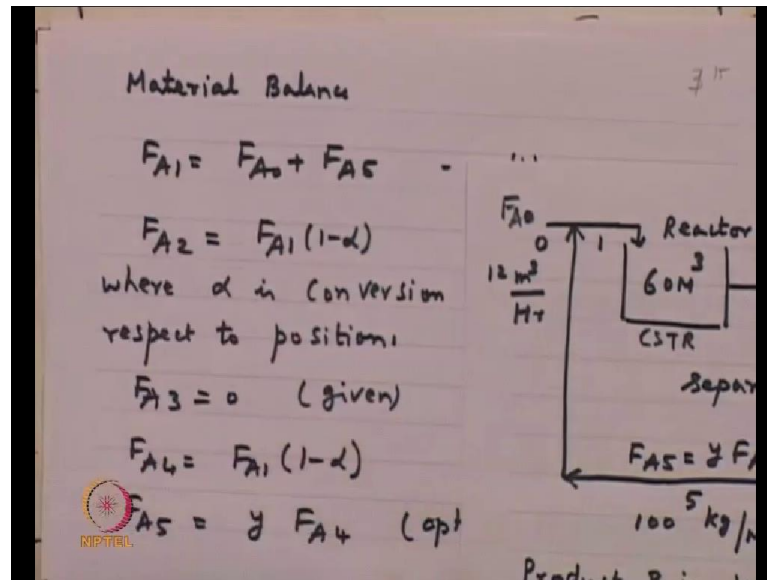 Material Balance
F_A1 = F_A0 + F_A5 -
F_A2 = F_A1 (1-α)
where α is conversion
respect to position 1
F_A3 = 0 (given)
F_A4 = F_A1 (1-α)
F_A5 = y F_A4 (opt
NPTEL
F_A0
0 1 Reactor
12 m³/Hr
60M³
CSTR
Separ
F_A5 = y F_A
5
100 kg/M
Product B is